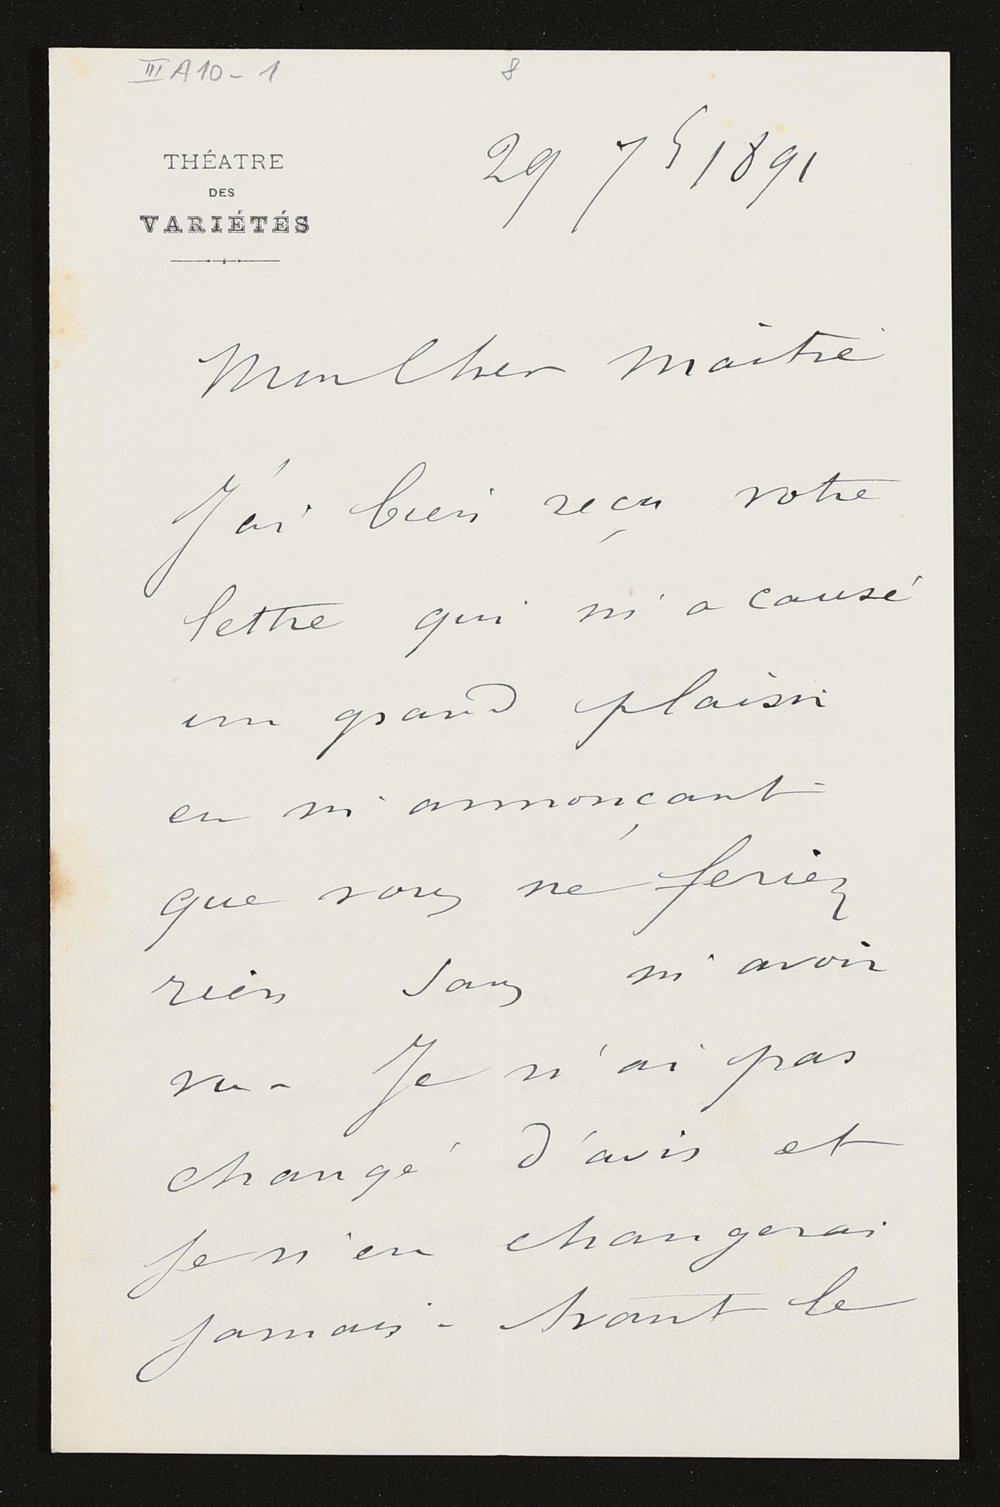 III A10 - 1
8
THÉATRE
DES
VARIÉTÉS
29 7b 1891
Mon Cher maître
J'ai bien reçu votre
lettre qui m'a causé
un grand plaisir
en m'annonçant
que vous ne feriez
rien sans m'avoir
vu - Je n'ai pas
changé d'avis et
je n'en changerai
jamais - Avant le